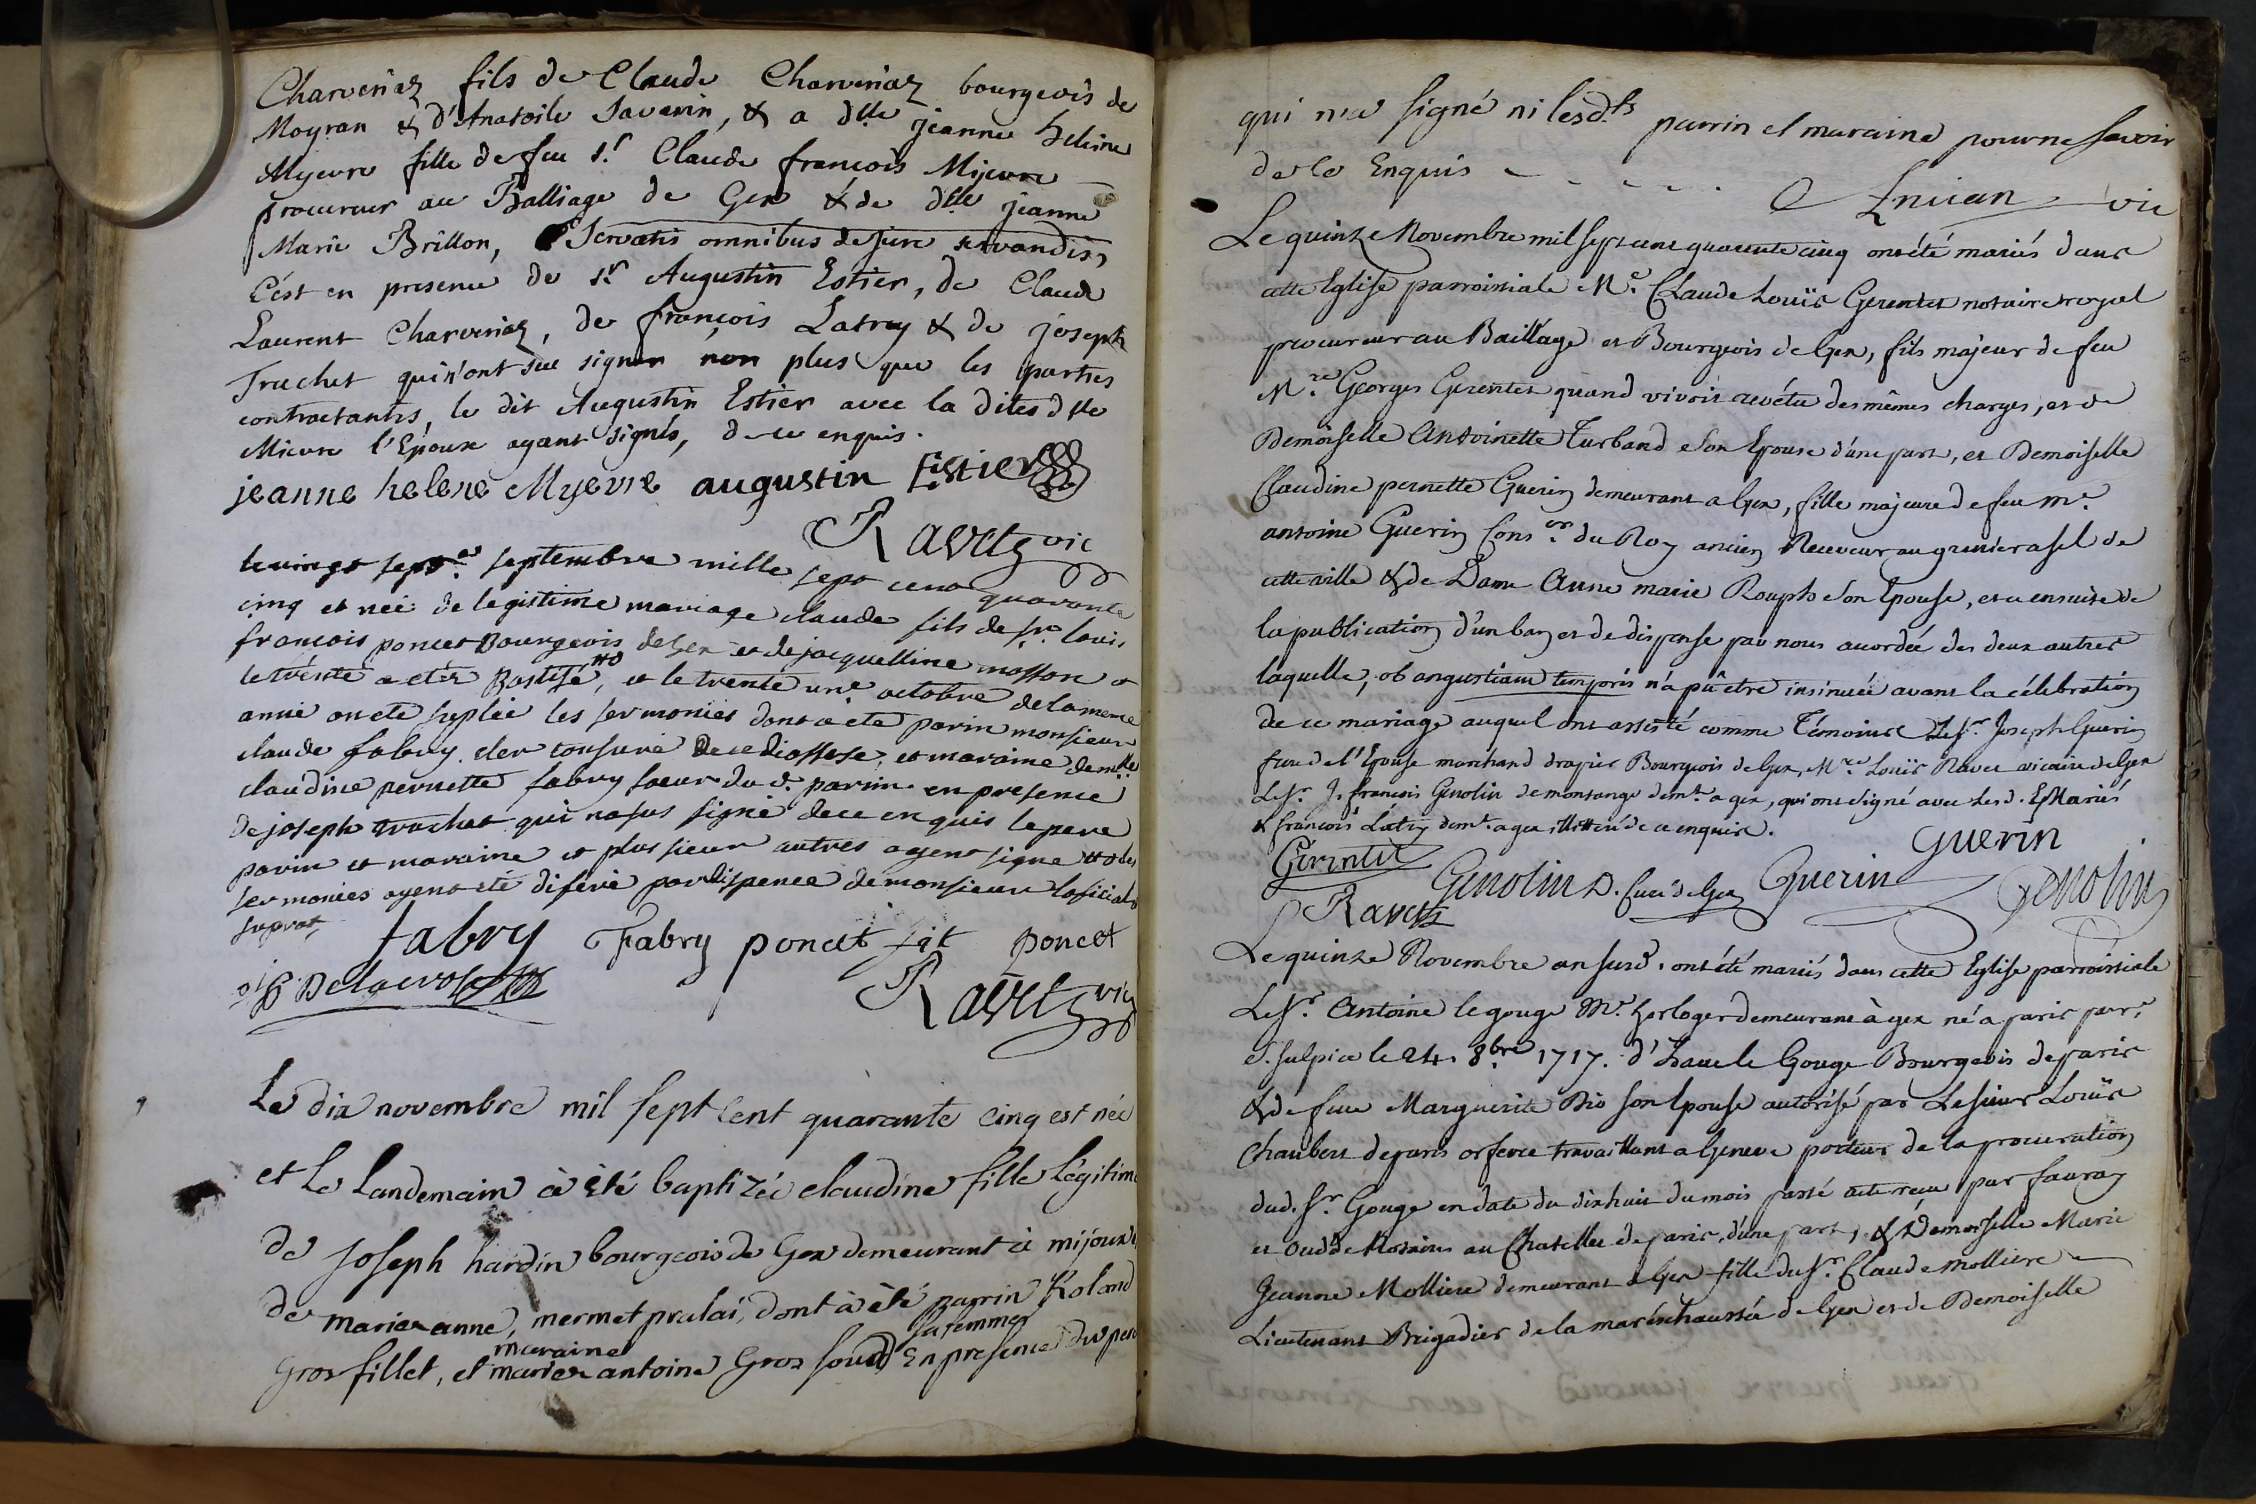 Charveriaz fils de Claude Charveriaz bourgeois de
Moyran & d'Anatoile Savarin, & a dlle jeanne helene
Myevre fille de feu sr. Claude françois Mijevre
procureur au Balliage de Gex & de dlle jeanne
Marie Brillon, Servatis omnibus de jure servandis,
C'est en presence de sr. Augustin Estier, de Claude
Laurent Charveriaz, de françois Latruy & de joseph
Truchet qui n'ont sue signer non plus que les parties
contractantes, le dit Augustin Estier avec la dites dlle
Mievre l'Epouse ayant signés, de ce enquis.
jeanne helene Myevre augustin Estier
Ravetz vic
le vingt sept.e septembre mille sept cent quarante
cinq et née de legistime mariage claude fils de sr. louis
francois poncet Bourgeois de Gex et de jacquelline masson et
le trente a eter Bastisé, et le trente une octobre de la meme
anné on ete supleé les sermonies dont a ete parin monsieur
claude fabry cler tonsuré de ce diossese, et maraine demlle
claudine pernette fabry soeur du d. parin en presence
de joseph truchet qui na sus signé de ce enquis le pere
parin et maraine et plus sieur autres ayent signe les
sermonies ayent eté diferé par dispence de monsieur loficial
fabry Fabry poncet poncet
Delacroix
Ravetz vic
Le dix novembre mil sept cent quarante cinq est née
et le Landemain à èté baptizée claudine fille Légitime
de Joseph hardin bourgeois de Gex demeurant à mijoux &
de marie anne, mermet pralai, dont à èté parrin Roland
sa femme
maraine
Gros fillet, et marie antoine Gros sourd En presence du pere
qui n'a signé ni lesd.ts parrin et maraine pour ne savoir
de ce Enquis
vic
Le quinze Novembre mil sept cent quarante cinq ont été mariés dans
cette Eglise parroissiale Mr. Claude Louis Gerentet notaire royal
procureur au Baillage et Bourgeois de Gex, fils majeur de feu
Mre. Georges Gerentet quand vivoit revétu des mêmes charges, et de
Demoiselle Antoinette Turband son Epouse d'une part, et Demoiselle
Claudine pernette Guerin demeurant a Gex, fille majeure de feu mr.
antoine Guerin Consr. du Roy ancien Receveur au grenier a sel de
cette ville & de Dame Anne marie Rouph son Epouse, et ce ensuite de
la publication d'un ban et de dispense par nous accordée des deux autres
laquelle, ob angustiam temporis n'a pû être insinuée avant la célébration
de ce mariage auquel ont assisté comme Témoins Le Sr. Joseph Guerin
frere de l'Epouse marchand drapier Bourgeois de Gex, Mre. Louis Ravet vicaire de Gex
Le Sr. J. francois Genolin de montange demt. a gex, qui ont signé avec les d. Mariés
& francois Latruy demt. a gex illitteré de ce enquis.
Gérentet Guerin
Genolin D. Curé de Gex Guerin Genolin
Ravetz
Le quinze Novembre an susd. ont été mariés dans cette Eglise parroissiale
Le Sr. Antoine le gouge Mr. horloger demeurant à gex né a paris parr.e
S. sulpice le 24. 8.bre 1717. d'Isaac le Gouge Bourgeois de paris
& de feue Marguerite Bio son Epouse autorisé par Le sieur Louis
Chaubert de paris orfevre travaillant a Geneve porteur de la procuration
dud. Sr. Gouge en date du dixhuit du mois passé acte reçu par fauray
et Oudde Notaires au Chatellet de paris, d'une part, & Demoiselle Marie
Jeanne Molliere demeurant a Gex fille du Sr. Claude molliere
Lieutenant Brigadier de la maréschaussée de Gex et de Demoiselle